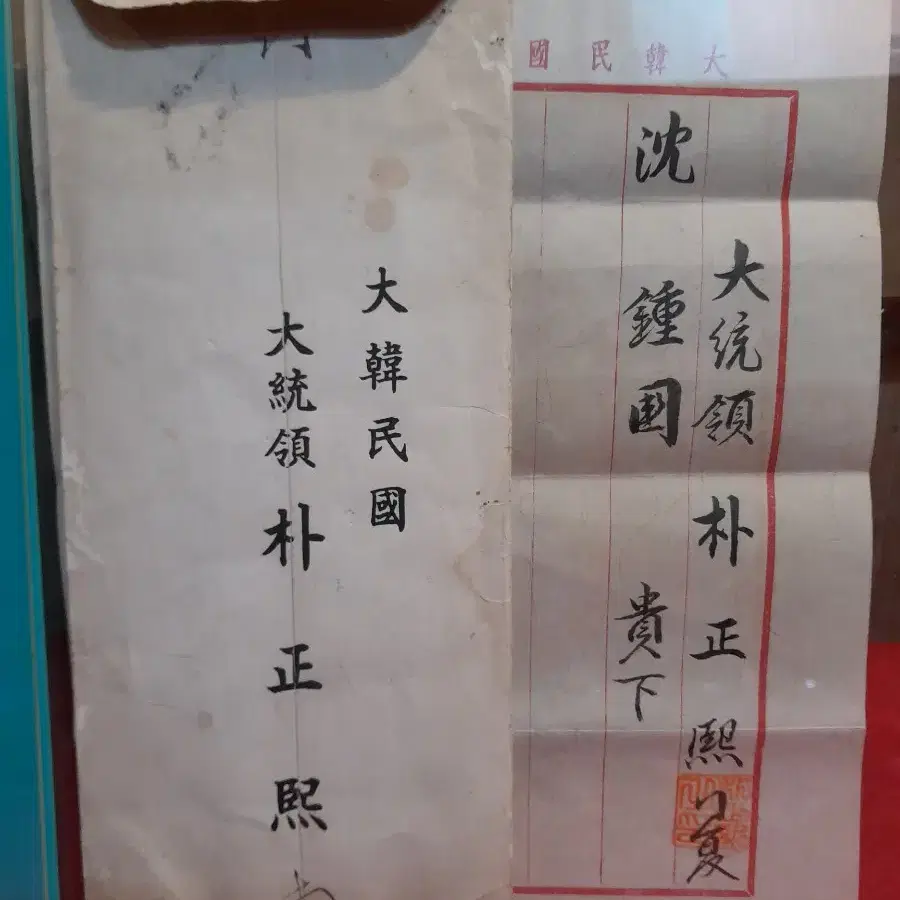 大韓民國
大統領 朴正熙
沈鍾 貴下
大韓民國
大統領 朴正熙